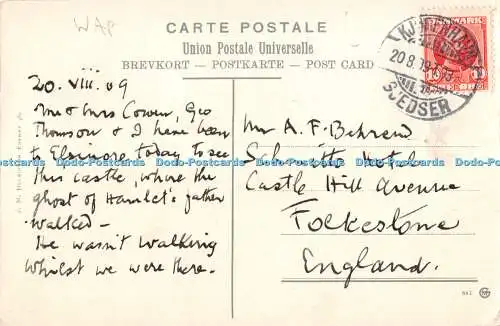 WAP
CARTE POSTALE
Union Postale Universelle
BREVKORT - POSTKARTE - POST CARD
DANMARK
10
KJØBENHAVN
20.8.09
GJEDSER
20. VIII. 09
Mr & Mrs Cowen, Geo
Thomson & I have been
to Elsinore today to see
this castle, where the
ghost of Hamlet's father
walked—
He wasn't walking
whilst we were there.—
Mr A. F. Behrend
Hotel
Castle Hill Avenue
Folkestone
England.
Dodo-Postcards Dodo-Postcards Dodo-Postcards Dodo-Postcards